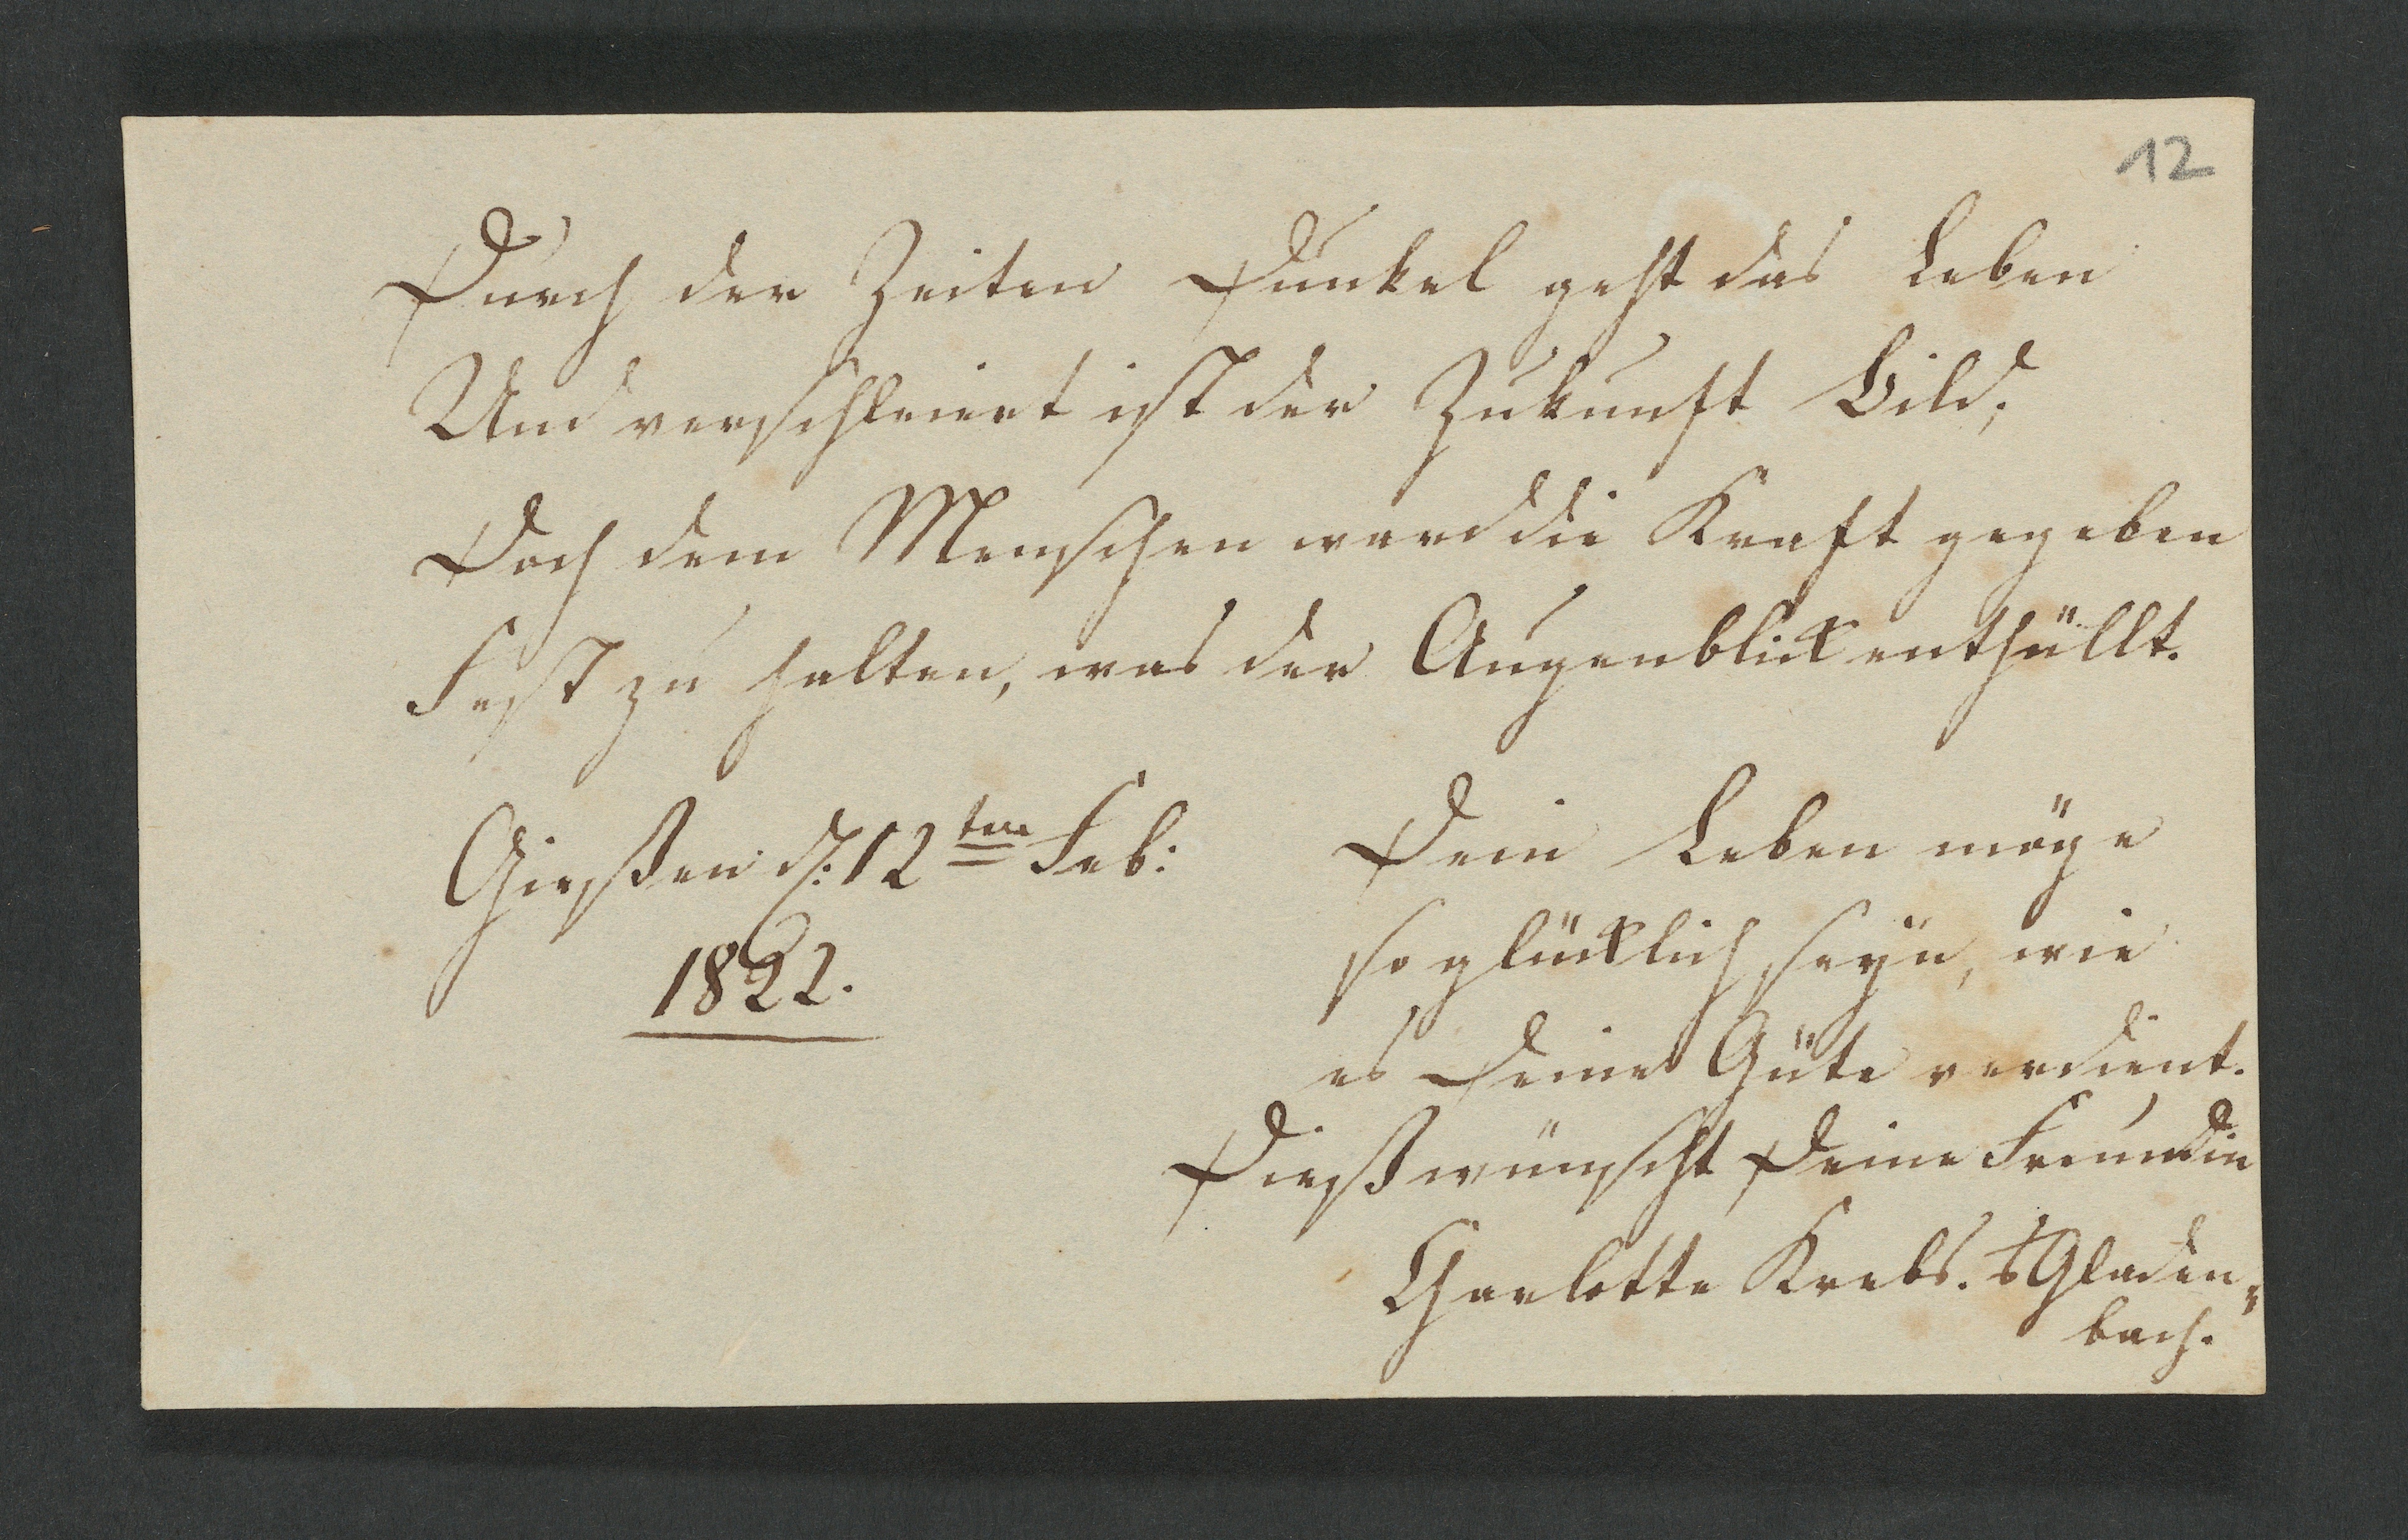 12
Durch der Zeiten Dunkel geht das Leben
Und verschleiert ist der Zukunft Bild;
Doch dem Menschen ward die Kraft gegeben
Fest zu halten, was der Augenblick enthüllt.
Gießen d: 12ten Feb:
1822.
Dein Leben möge
so glücklich seyn, wie
es Deine Güte verdient.
Dieß wünscht Deine Freundin
Charlotte Krebs. Gladen„
bach.